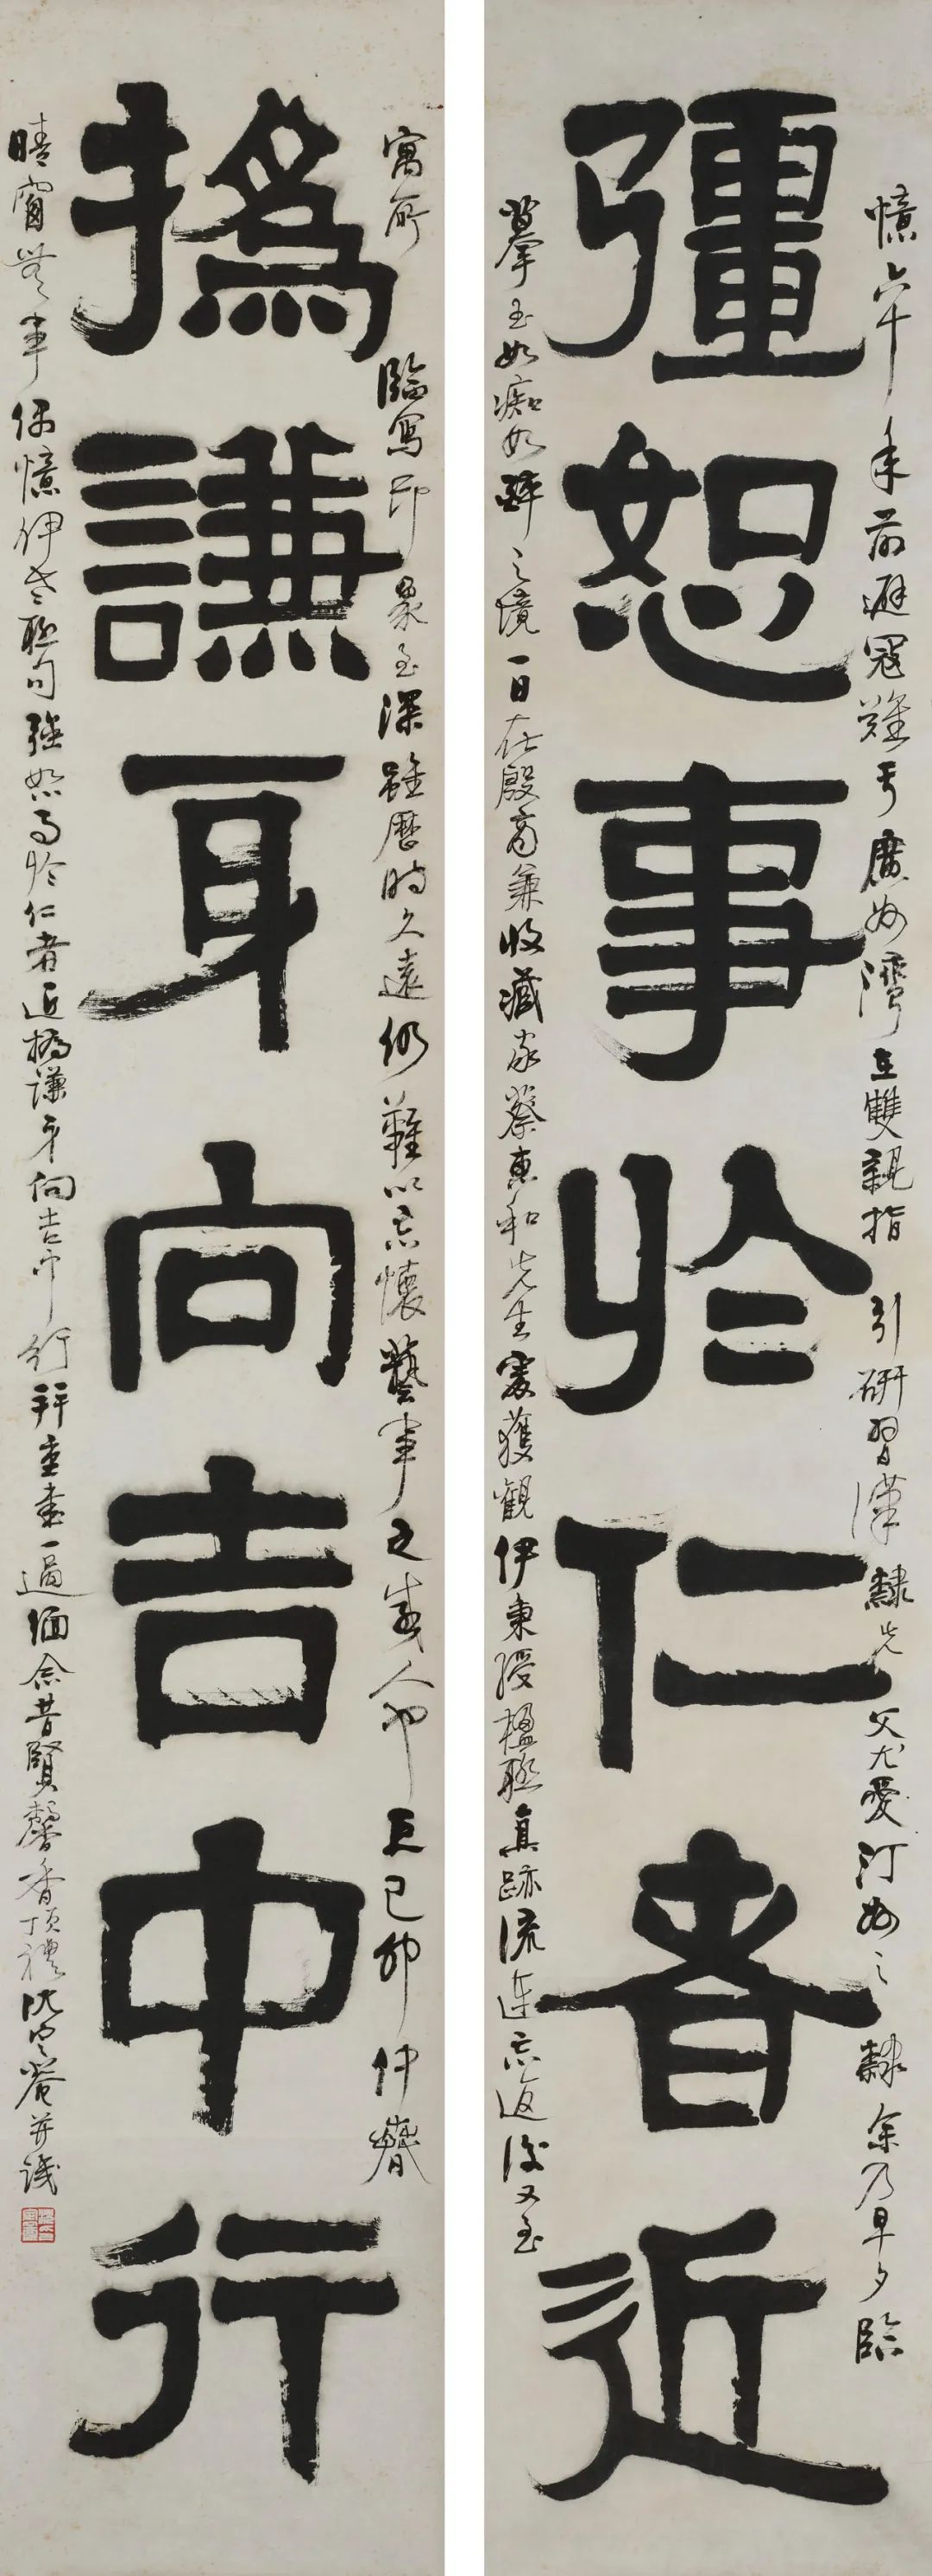 憶六十年前避寇難于廣州灣在雙親指引研習漢隸先父尤愛汀州之隸余乃早夕臨
彊恕事於仁者近
摹至如痴如醉之境一日在殷商兼收藏家蔡惠和先生處獲觀伊秉綬楹聯真跡流連忘返後又至
寓所臨寫印象至深雖歷時久遠仍難以忘懷藝事之感人也己卯仲春
撝謙身向吉中行
晴窗無事偶憶伊老聯句強恕事於仁者近撝謙身向吉中行拜重書一過緬念昔賢馨香頂禮沈定庵并識